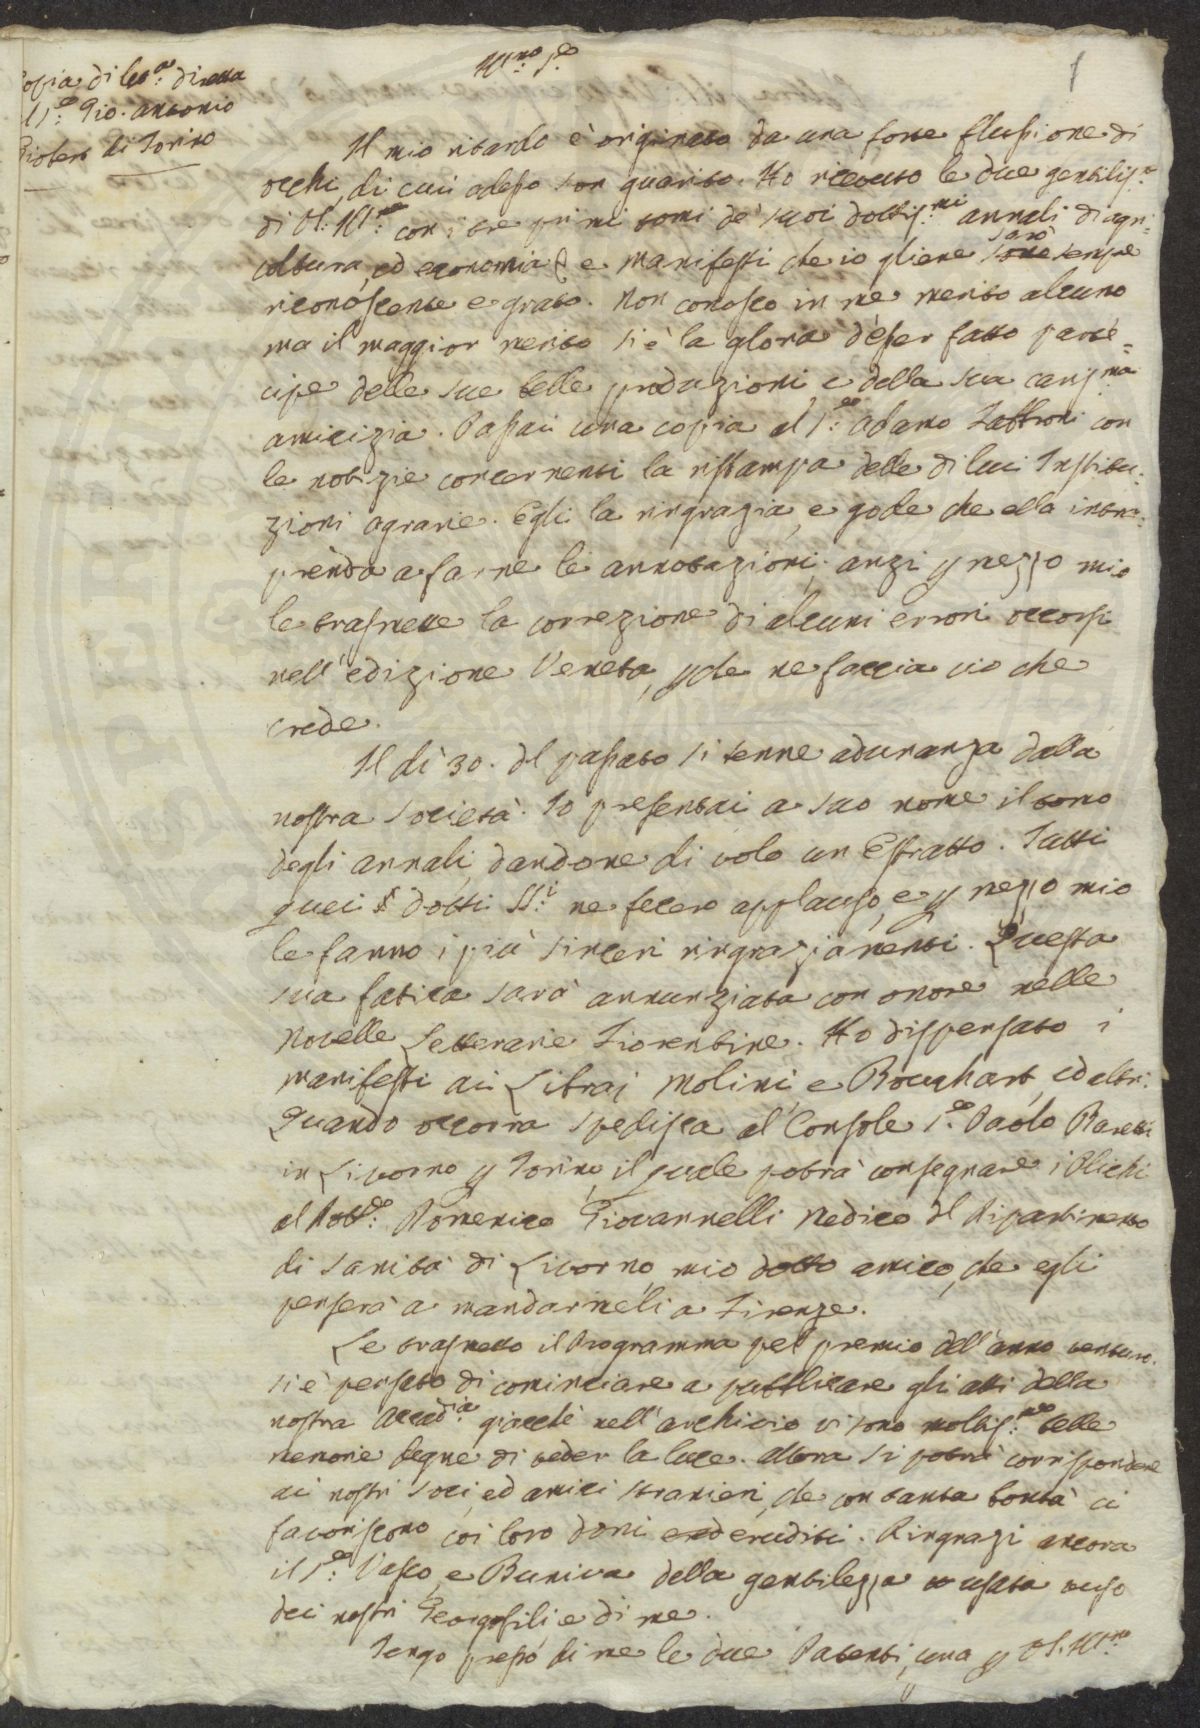 Copia di lett.ra diretta
al S.r Gio. Antonio
Giobert di Torino
1
Ill.mo S.re
Il mio ritardo è originato da una forte flussione di
occhi, di cui adesso son guarito. Ho ricevuto le due gentiliss.e
di V.S. Ill.ma con i tre primi tomi de' suoi dottiss.mi annali di agri:
coltura, ed economia, e manifesti che io gliene sarò sempre
riconoscente e grato. Non conosco in me merito alcuno
ma il maggior merito si è la gloria d'esser fatto parte=
cipe delle sue belle produzioni, e della sua cariss.ma
amicizia. Passai una copia al S.r Adamo Fabbroni con
le notizie concernenti la ristampa delle di lui Institu:
zioni agrarie. Egli la ringrazia, e gode che ella intra:
prenda a farne le annotazioni; anzi p mezzo mio
le trasmette la correzione di alcuni errori occorsi
nell'edizione Veneta, pche ne faccia ciò che
crede.
Il dì 30. del passato si tenne adunanza dalla
nostra Società. Io presentai a suo nome il tomo
degli annali, dandone di volo un Estratto. Tutti
quei dotti SS.i ne fecero applauso, e p mezzo mio
le fanno i più sinceri ringraziamenti. Questa
sua fatica sarà annunziata con onore nelle
Novelle Letterarie Fiorentine. Ho dispensato i
manifesti ai Librai Molini, e Bouchard, ed altri.
Quando occorra spedisca al Console S.r Paolo Baretti
in Livorno p Torino, il quale potrà consegnare i Plichi
al Dott.re Domenico Giovannelli Medico del Dipartimento
di Sanità di Livorno, mio dotto amico, che egli
penserà a mandarmeli a Firenze.
Le trasmetto il Programma pel premio dell'anno venturo.
Si è pensato di cominciare a pubblicare gli atti della
nostra Accad.ia giacchè nell'archivio vi sono moltiss.me belle
memorie degne di veder la luce. Allora si potrà corrispondere
ai nostri soci, ed amici stranieri, che con tanta bontà ci
favoriscono coi loro doni eruditi. Ringrazi ancora
il S.r Vasco, e Buniva della gentilezza usata verso
dei nostri Georgofili e di me.
Tengo presso di me le due Patenti, una p V.S. Ill.ma